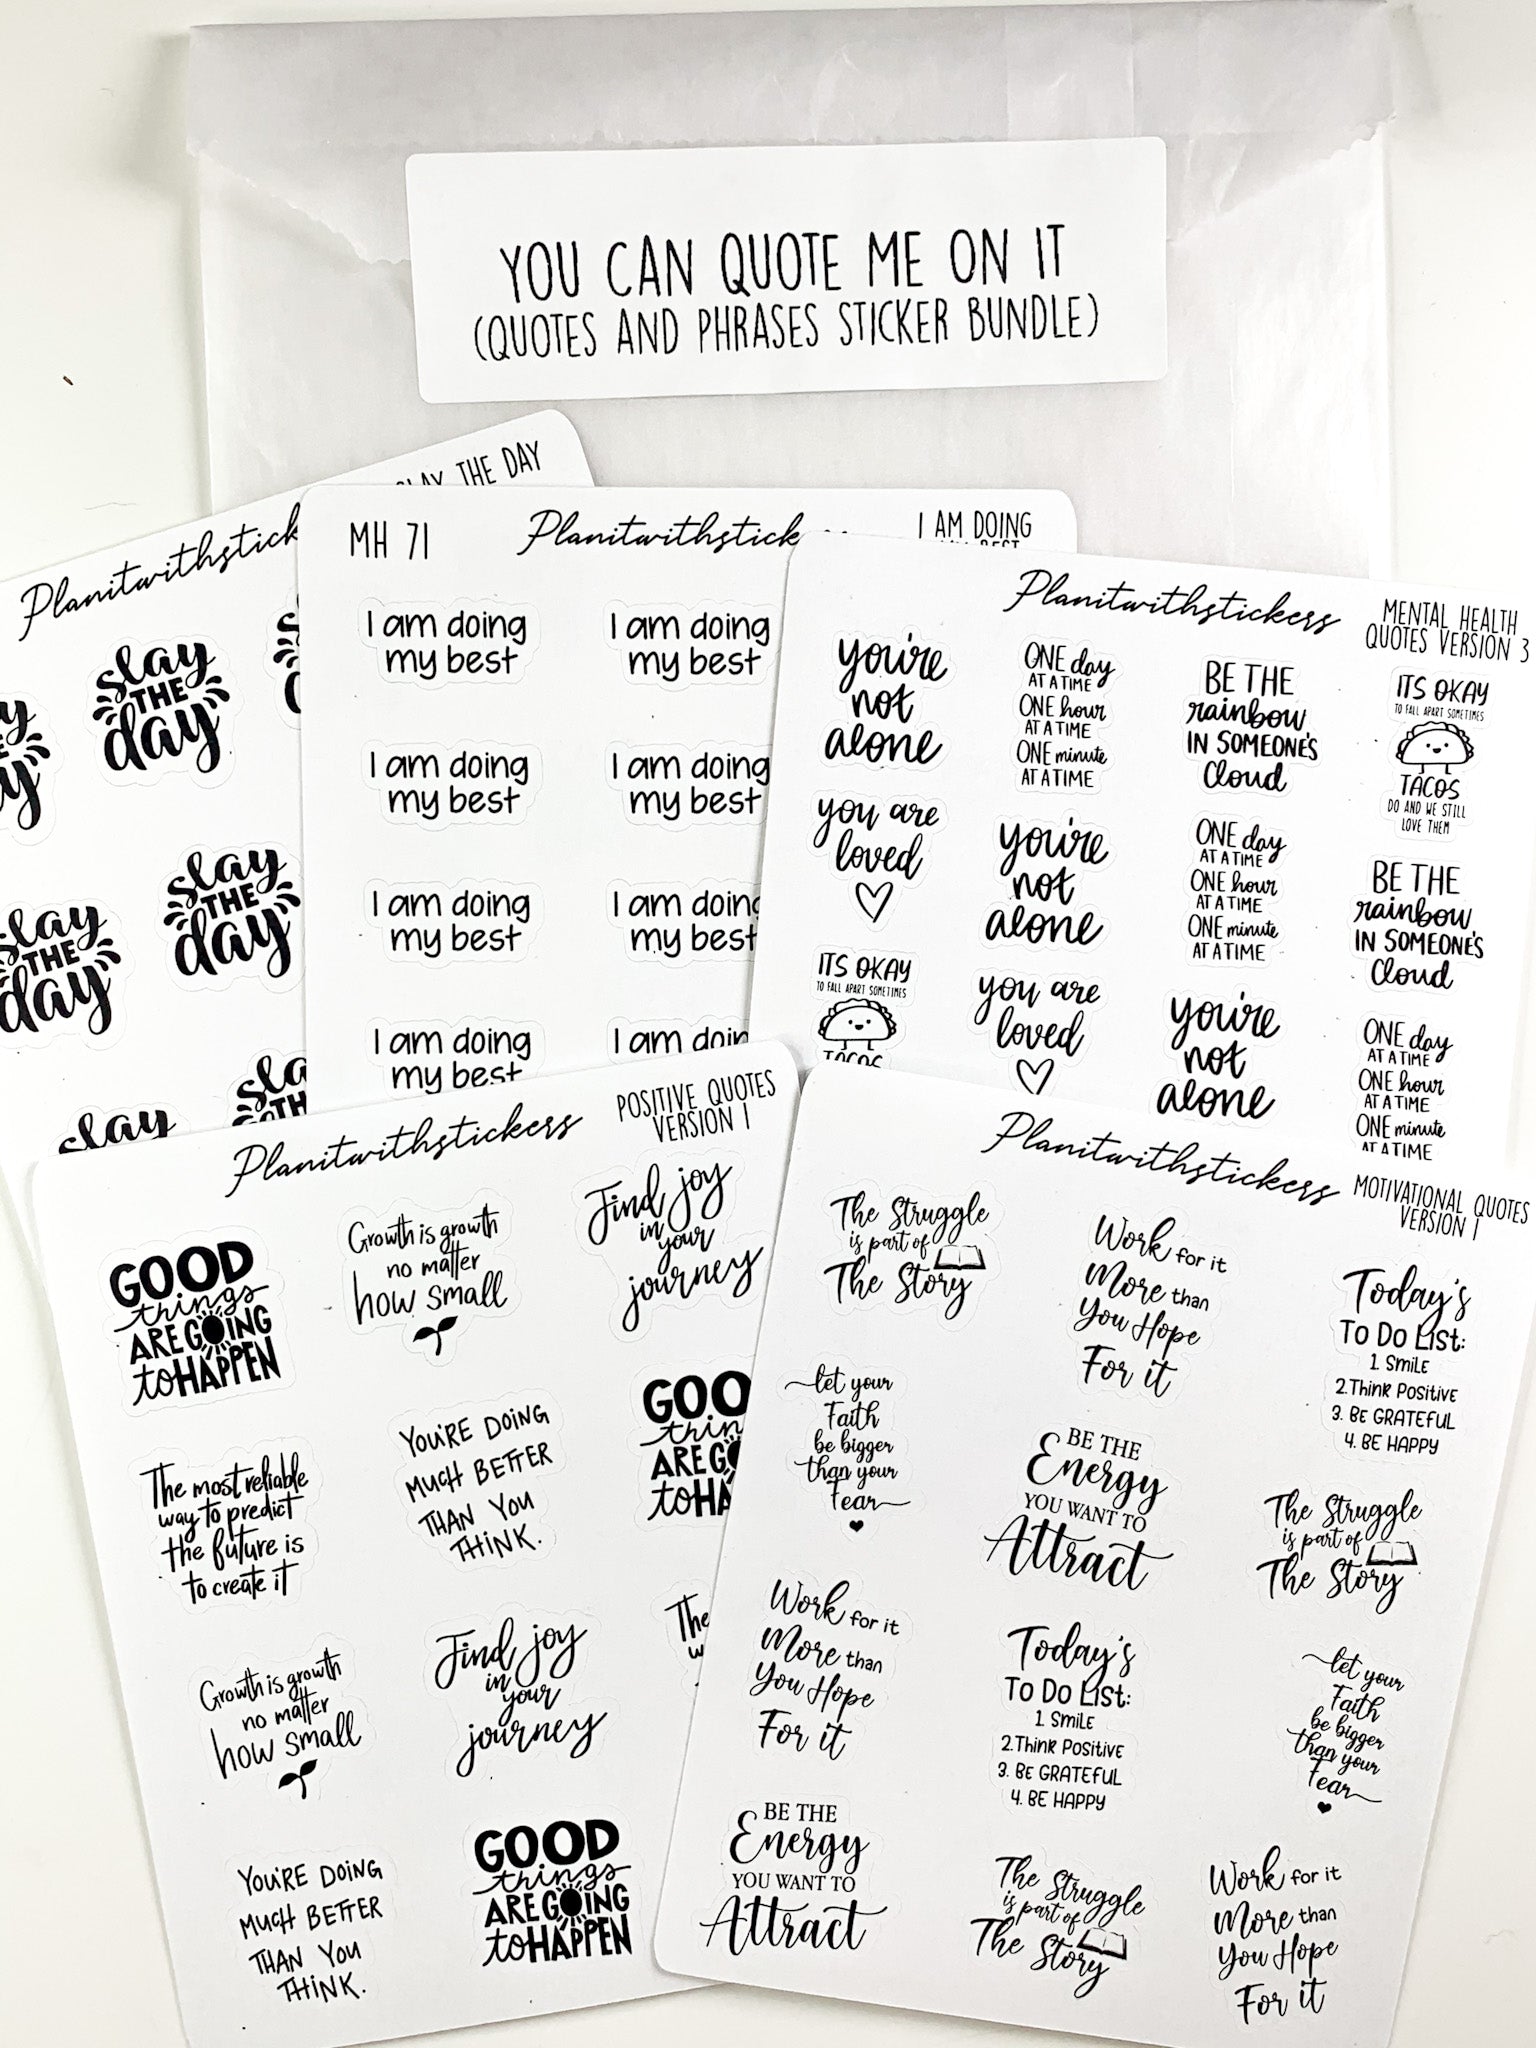 YOU CAN QUOTE ME ON IT
(QUOTES AND PHRASES STICKER BUNDLE)
SLAY THE DAY
Planitwithstick
slay
THE
day
slay
THE
day
slay
THE
day
slay
MH 71
Planitwithsticke
I AM DOING
MY BEST
I am doing
my best
I am doing
my best
I am doing
my best
I am doing
my best
I am doing
my best
I am doing
my best
I am doing
my best
I am doing
Planitwithstickers
MENTAL HEALTH
QUOTES VERSION 3
you're
not
alone
ONE day
AT A TIME
ONE hour
AT A TIME
ONE minute
AT A TIME
BE THE
rainbow
IN SOMEONE'S
Cloud
ITS OKAY
TO FALL APART SOMETIMES
TACOS
DO AND WE STILL
LOVE THEM
you are
loved
you're
not
alone
ONE day
AT A TIME
ONE hour
AT A TIME
ONE minute
AT A TIME
BE THE
rainbow
IN SOMEONE'S
Cloud
ITS OKAY
TO FALL APART SOMETIMES
TACOS
you are
loved
you're
not
alone
ONE day
AT A TIME
ONE hour
AT A TIME
ONE minute
AT A TIME
Planitwithstickers
POSITIVE QUOTES
VERSION 1
GOOD
things
ARE GOING
to HAPPEN
Growth is growth
no matter
how small
Find joy
in
your
journey
The most reliable
way to predict
the future is
to create it
YOU'RE DOING
MUCH BETTER
THAN YOU
THINK.
GOO
thin
ARE GO
to HA
Growth is growth
no matter
how small
Find joy
in
your
journey
The
w
YOU'RE DOING
MUCH BETTER
THAN YOU
THINK.
GOOD
things
ARE GOING
to HAPPEN
Planitwithstickers
MOTIVATIONAL QUOTES
VERSION 1
The Struggle
is part of
The Story
Work for it
More than
You Hope
For it
Today's
To Do List:
1. Smile
2. Think Positive
3. BE GRATEFUL
4. BE HAPPY
let your
Faith
be bigger
than your
Fear
BE THE
Energy
YOU WANT TO
Attract
The Struggle
is part of
The Story
Work for it
More than
You Hope
For it
Today's
To Do List:
1. Smile
2. Think Positive
3. BE GRATEFUL
4. BE HAPPY
let your
Faith
be bigger
than your
Fear
BE THE
Energy
YOU WANT TO
Attract
The Struggle
is part of
The Story
Work for it
More than
You Hope
For it